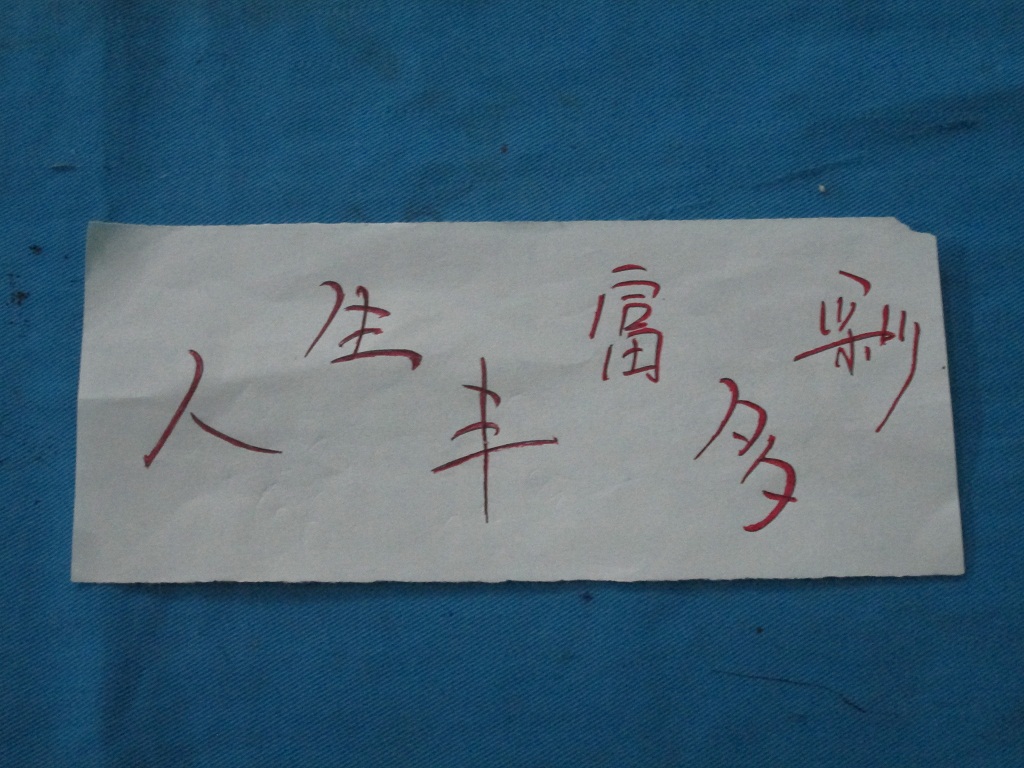 人生丰富多彩